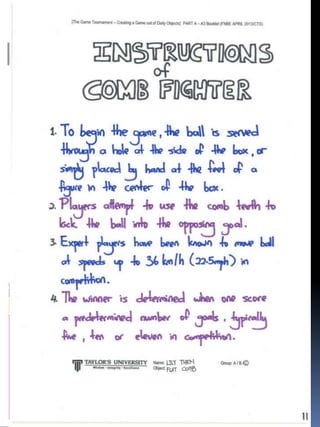 [The Game Tournament – Creating a Game out of Daily Objects] PART A – A3 Booklet (FNBE APRIL 2013/CTS)
INSTRUCTIONS
of
COMB FIGHTER
1. To begin the game, the ball is served
through a hole at the side of the box, or
simply placed by hand at the feet of a
figure in the center of the box.
2. Players attempt to use the comb teeth to
kick the ball into the opposing goal.
3. Expert players have been known to move ball
at speeds up to 36 km/h (22.5mph) in
competition.
4. The winner is determined when one score
a predetermined number of goals, typically
five, ten or eleven in competition.
TAYLOR'S UNIVERSITY
Wisdom · Integrity · Excellence
Name:
Object: COMB
Group: A / B
11